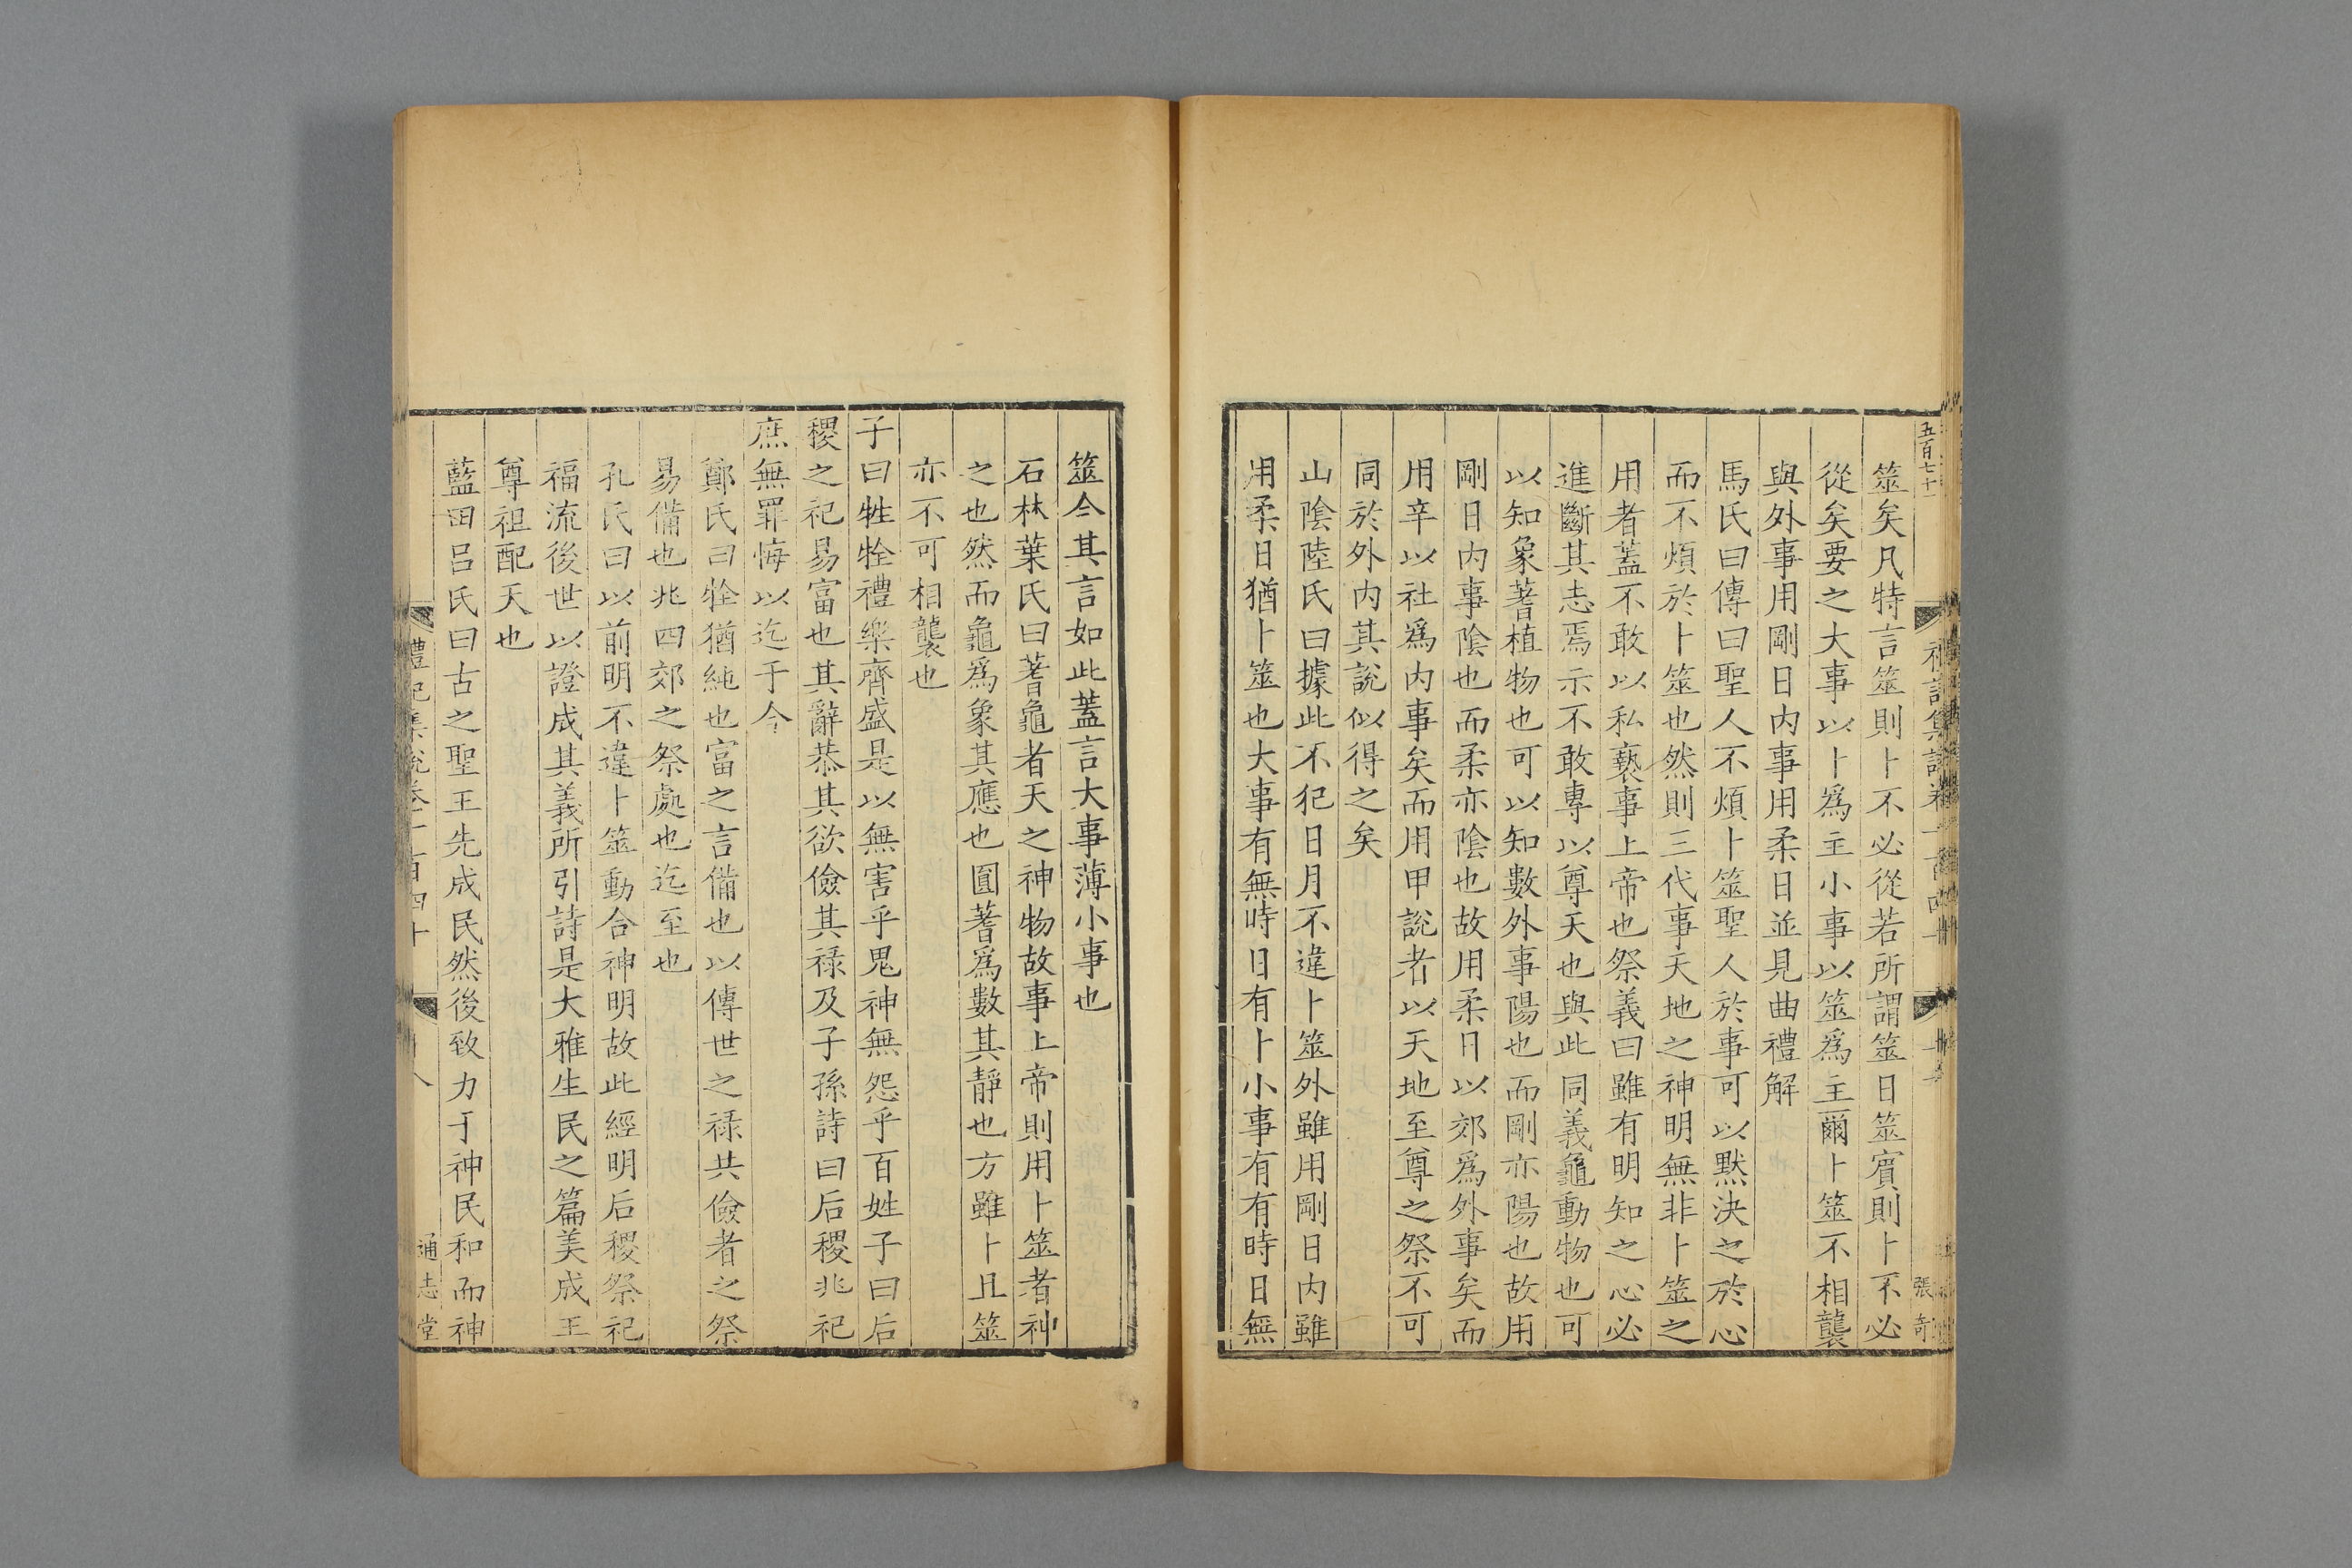 五百七十一
張奇
筮矣凡特言筮則卜不必從若所謂筮日筮賓則卜不必
從矣要之大事以卜爲主小事以筮爲主爾卜筮不相襲
與外事用剛日内事用柔日並見曲禮解
馬氏曰傳曰聖人不煩卜筮聖人於事可以默決之於心
而不煩於卜筮也然則三代事天地之神明無非卜筮之
用者蓋不敢以私褻事上帝也祭義曰雖有明知之心必
進斷其志焉示不敢專以尊天也與此同義龜動物也可
以知象蓍植物也可以知數外事陽也而剛亦陽也故用
剛日内事陰也而柔亦陰也故用柔日以郊爲外事矣而
用辛以社爲内事矣而用甲說者以天地至尊之祭不可
同於外内其說似得之矣
山陰陸氏曰據此不犯日月不違卜筮外雖用剛日内雖
用柔日猶卜筮也大事有無時日有卜小事有有時日無
筮今其言如此蓋言大事薄小事也
石林葉氏曰蓍龜者天之神物故事上帝則用卜筮者神
之也然而龜爲象其應也圓蓍爲數其靜也方雖卜且筮
亦不可相襲也
子曰牲牷禮樂齊盛是以無害乎鬼神無怨乎百姓子曰后
稷之祀易富也其辭恭其欲儉其祿及子孫詩曰后稷兆祀
庶無罪悔以迄于今
鄭氏曰牷猶純也富之言備也以傳世之祿共儉者之祭
易備也兆四郊之祭處也迄至也
孔氏曰以前明不違卜筮動合神明故此經明后稷祭祀
福流後世以證成其義所引詩是大雅生民之篇美成王
尊祖配天也
藍田呂氏曰古之聖王先成民然後致力于神民和而神
禮記集說卷一百四十
八
通志堂